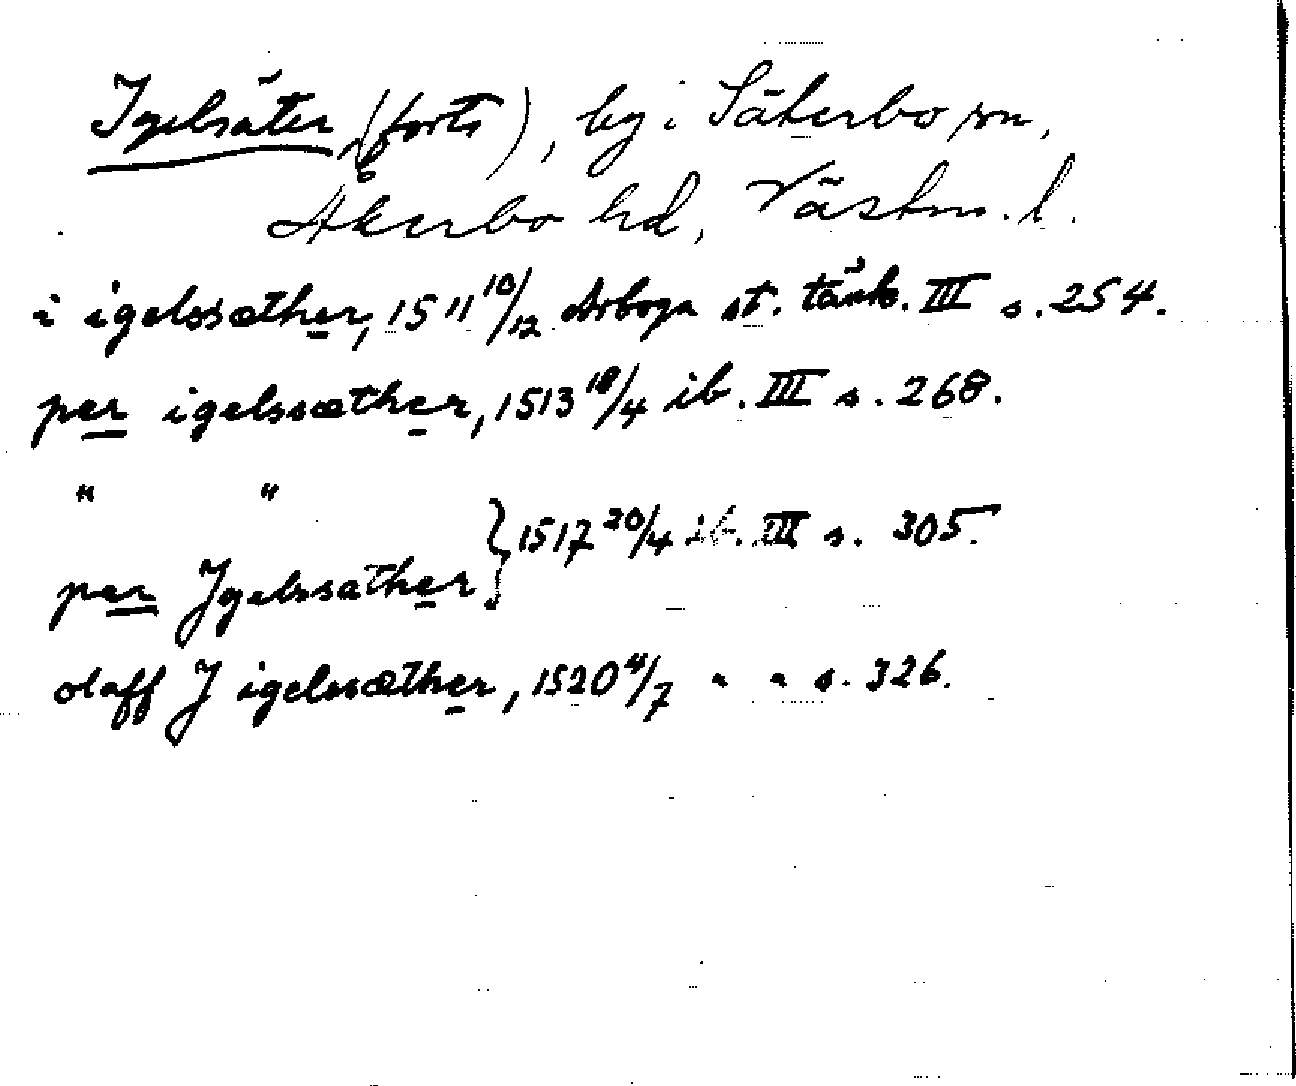 Igelsäter (forts), by i Säterbo sn,
Åkerbo hd, Västm. l.
i igelssæther, 1511 10/12 Arboga st. tänkb. III s. 254.
per igelssæther, 1513 18/4 ib. III s. 268.
" "
} 1517 20/4 ib. III s. 305.
per Jgelssæther
olaff J igelssæther, 1520 4/7 " " s. 326.